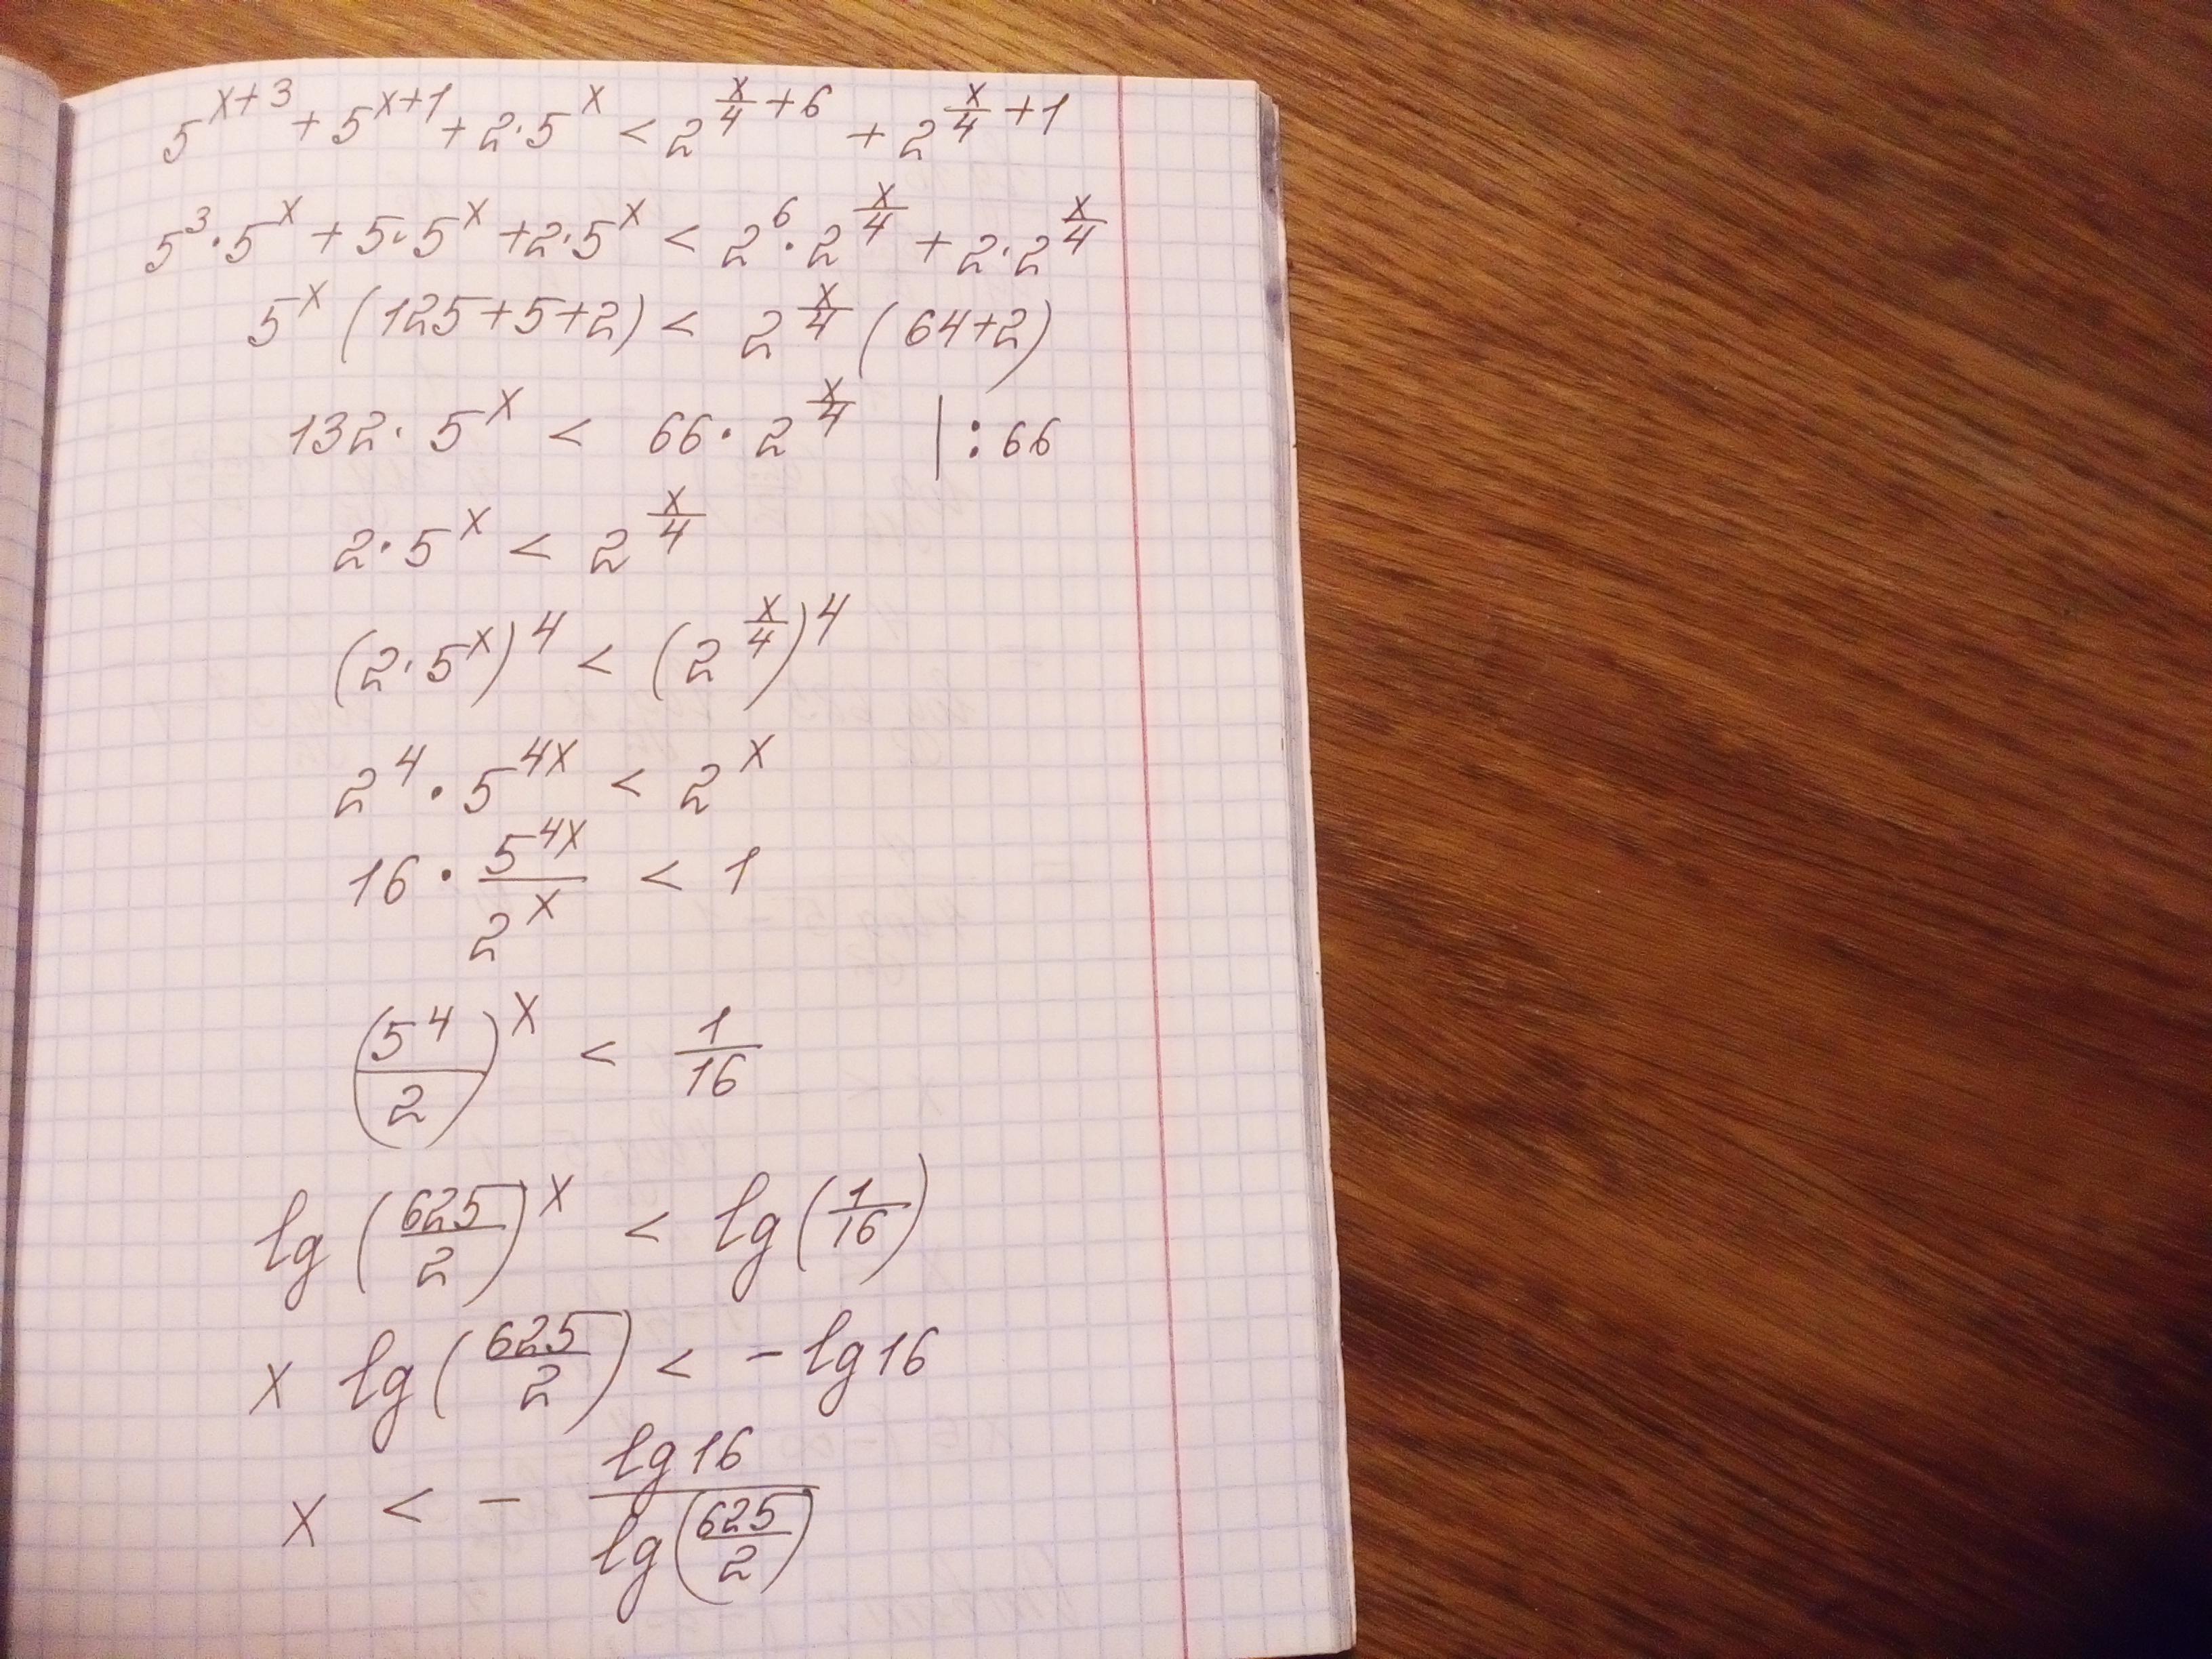 5^{x+3} + 5^{x+1} + 2·5^x < 2^{\frac{x}{4}+6} + 2^{\frac{x}{4}+1}
5^3·5^x + 5·5^x + 2·5^x < 2^6·2^{\frac{x}{4}} + 2·2^{\frac{x}{4}}
5^x (125+5+2) < 2^{\frac{x}{4}} (64+2)
132·5^x < 66·2^{\frac{x}{4}} | :66
2·5^x < 2^{\frac{x}{4}}
(2·5^x)^4 < (2^{\frac{x}{4}})^4
2^4·5^{4x} < 2^x
16·\frac{5^{4x}}{2^x} < 1
(\frac{5^4}{2})^x < \frac{1}{16}
lg(\frac{625}{2})^x < lg(\frac{1}{16})
x lg(\frac{625}{2}) < -lg16
x < -\frac{lg16}{lg(\frac{625}{2})}